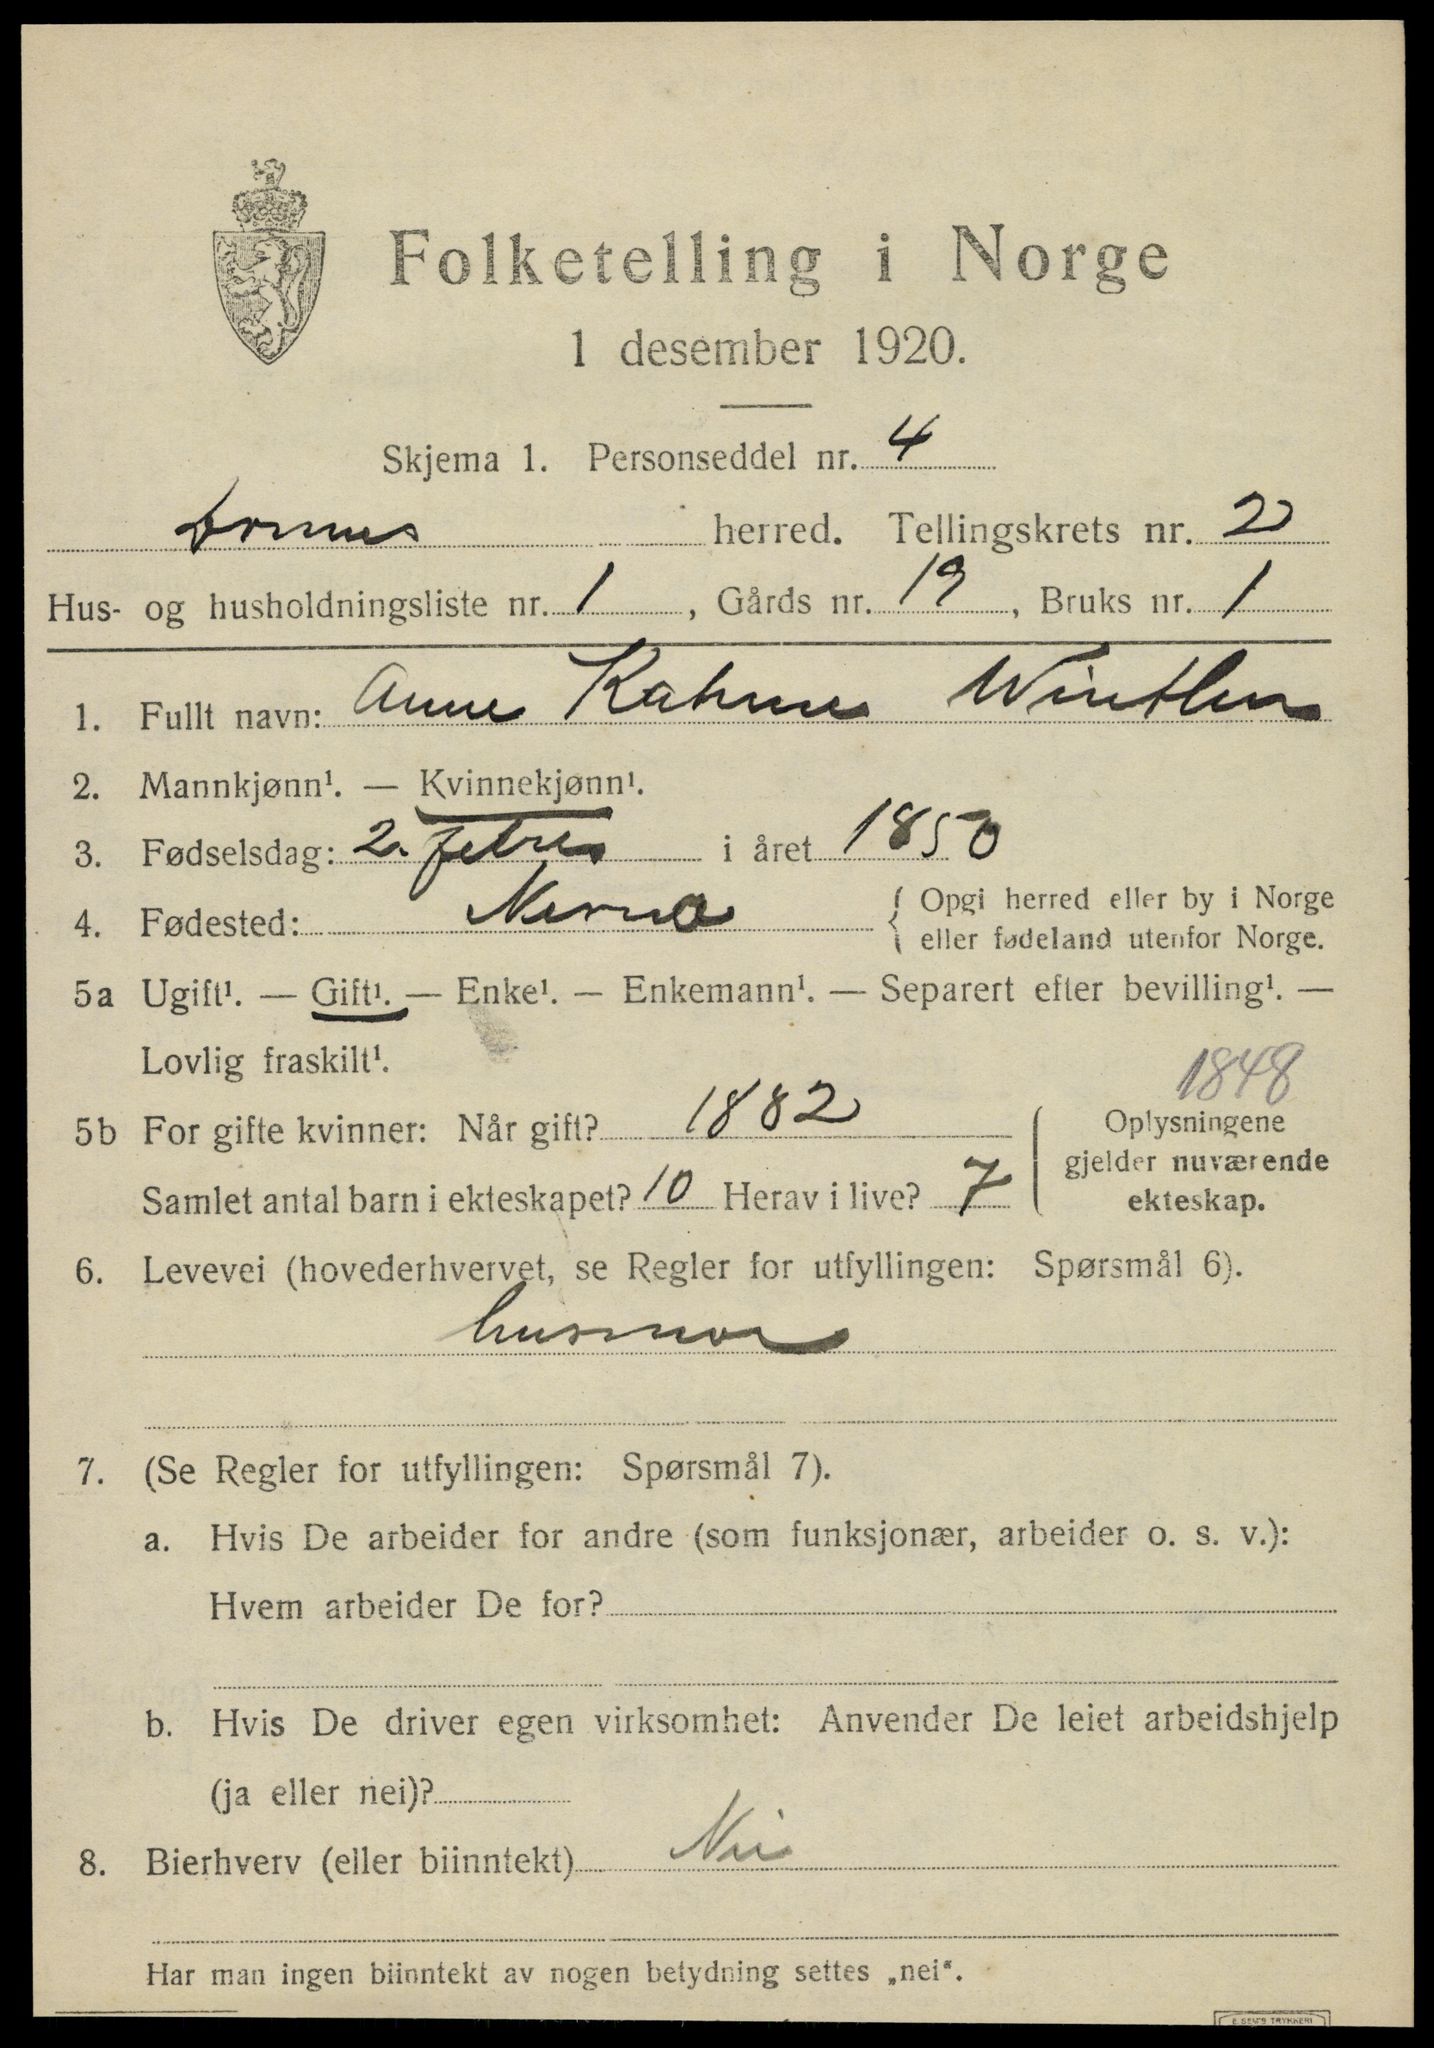 Folketelling i Norge
1 desember 1920.
Skjema 1. Personseddel nr. 4
herred. Tellingskrets nr. 2
Hus- og husholdningsliste nr. 1, Gårds nr. 19, Bruks nr. 1
1. Fullt navn: Anne Katrine Winther
2. Mannkjønn¹. — Kvinnekjønn¹.
3. Fødselsdag: 2. febr i året 1850
4. Fødested: Nesna { Opgi herred eller by i Norge
eller fødeland utenfor Norge.
5a Ugift¹. — Gift¹. — Enke¹. — Enkemann¹. — Separert efter bevilling¹. —
Lovlig fraskilt¹.
1848
5b For gifte kvinner: Når gift? 1882
Samlet antal barn i ekteskapet? 10 Herav i live? 7
Oplysningene
gjelder nuværende
ekteskap.
6. Levevei (hovederhvervet, se Regler for utfyllingen: Spørsmål 6).
husmor
7. (Se Regler for utfyllingen: Spørsmål 7).
a. Hvis De arbeider for andre (som funksjonær, arbeider o. s. v.):
Hvem arbeider De for?
b. Hvis De driver egen virksomhet: Anvender De leiet arbeidshjelp
(ja eller nei)?
8. Bierhverv (eller biinntekt) Nei
Har man ingen biinntekt av nogen betydning settes „nei“.
E. SEM'S TRYKKERI